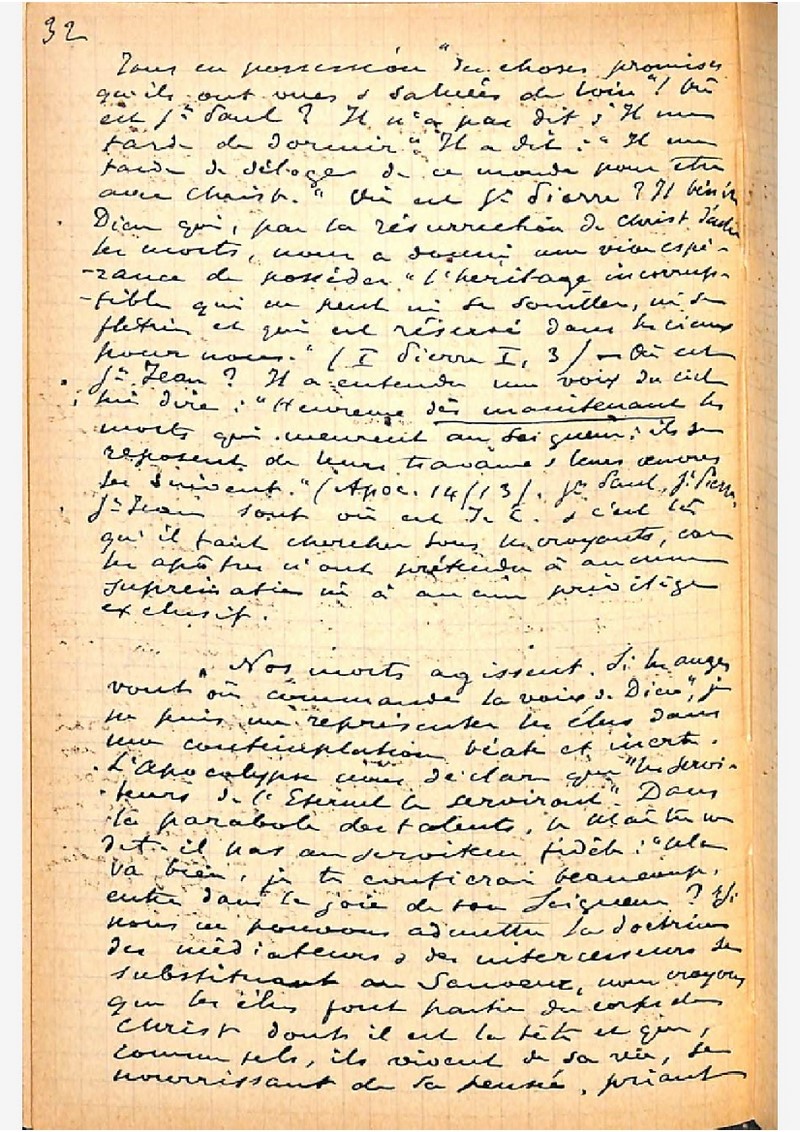 32
Tous en possession "des choses promises
qu'ils ont vues & saluées de loin"! Où
est St Paul? Il n'a pas dit: "Il me
tarde de dormir". Il a dit: "Il me
tarde de déloger de ce monde pour être
avec Christ." Où est St Pierre? Il bénit
Dieu qui, par la résurrection de Christ d'entre
les morts, nous a donné une vive espé-
-rance de posséder "l'héritage incorrup-
-tible qui ne peut ni se souiller, ni se
flétrir et qui est réservé dans les cieux
pour nous." (I Pierre I, 3) — Où est
St Jean? Il a entendu une voix du ciel
lui dire: "Heureux dès maintenant les
morts qui meurent au Seigneur; ils se
reposent de leurs travaux & leurs œuvres
les suivent." (Apoc. 14/13). St Paul, St Pierre,
St Jean sont où est J. C. & c'est là
qu'il faut chercher tous les croyants, car
les apôtres n'ont prétendu à aucune
suprématie ni à aucun privilège
exclusif.
Nos morts agissent. Si les anges
vont "où commande la voix de Dieu", je
ne puis me représenter les élus dans
une contemplation béate et inerte.
L'Apocalypse nous déclare que "les servi-
teurs de l'Eternel le serviront". Dans
la parabole des talents, le Maître ne
dit-il pas au serviteur fidèle: "Cela
va bien, je te confierai beaucoup,
entre dans la joie de ton Seigneur? Si
nous ne pouvons admettre la doctrine
des médiateurs & des intercesseurs se
substituant au Sauveur, nous croyons
que les élus font partie du corps de
Christ dont il est la tête et que,
comme tels, ils vivent de sa vie, se
nourrissant de sa pensée, priant